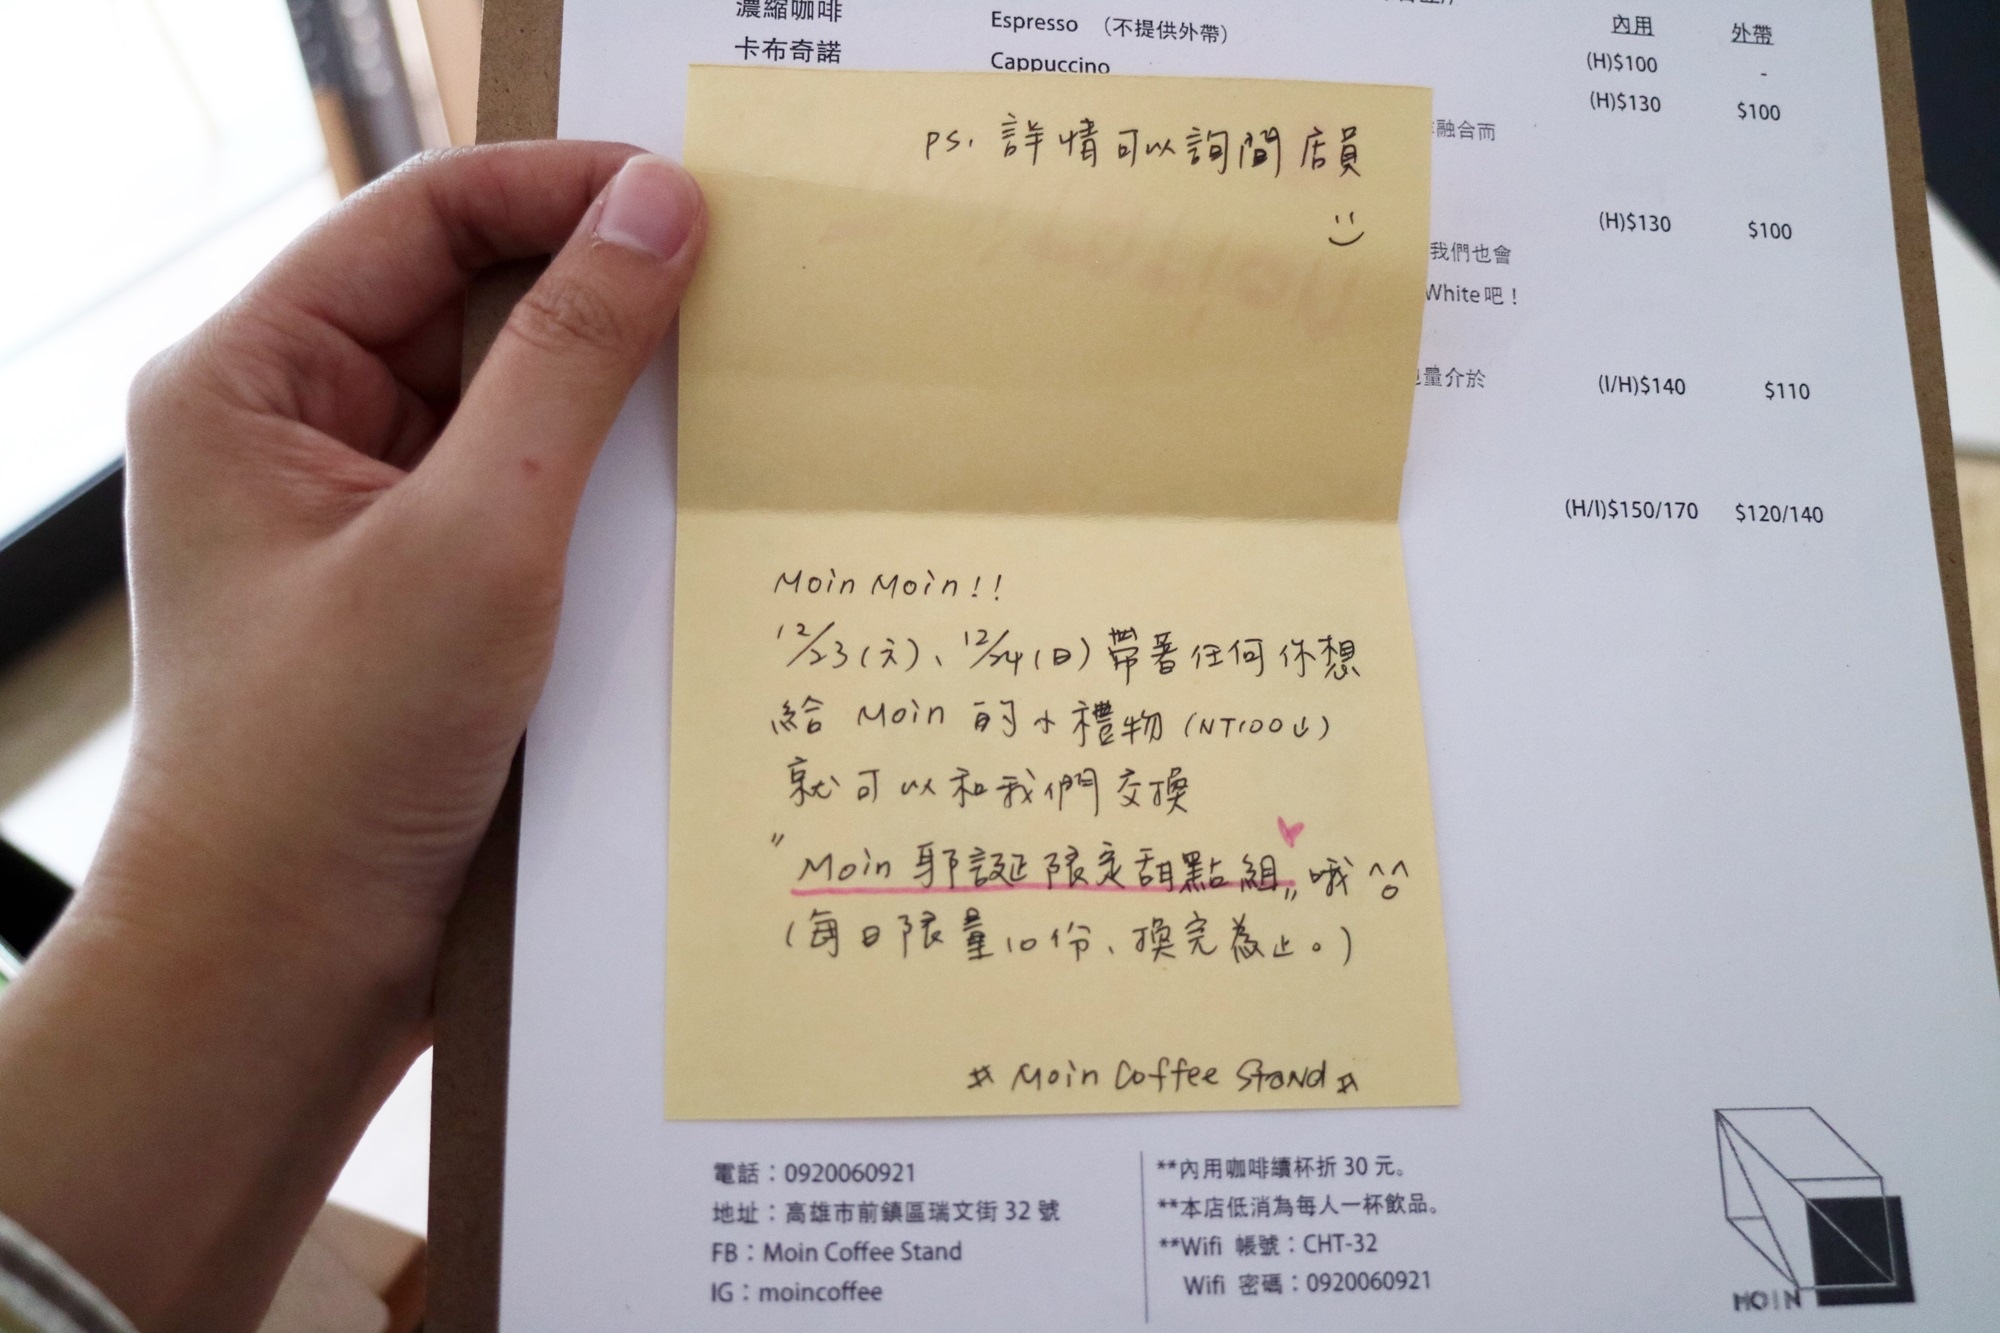 濃縮咖啡 Espresso （不提供外帶）
卡布奇諾 Cappuccino
內用 外帶
(H)$100 -
(H)$130 $100
融合而
(H)$130 $100
我們也會
White吧！
量介於
(I/H)$140 $110
(H/I)$150/170 $120/140
PS. 詳情可以詢問店員
Moin Moin!!
12/23(六)、12/24(日)帶著任何你想
給 Moin 的小禮物(NT100↓)
就可以和我們交換
"Moin 耶誕限定甜點組"哦^^
(每日限量10份、換完為止。)
Moin Coffee Stand
電話：0920060921
地址：高雄市前鎮區瑞文街 32 號
FB：Moin Coffee Stand
IG：moincoffee
**內用咖啡續杯折 30 元。
**本店低消為每人一杯飲品。
**Wifi 帳號：CHT-32
Wifi 密碼：0920060921
MOIN